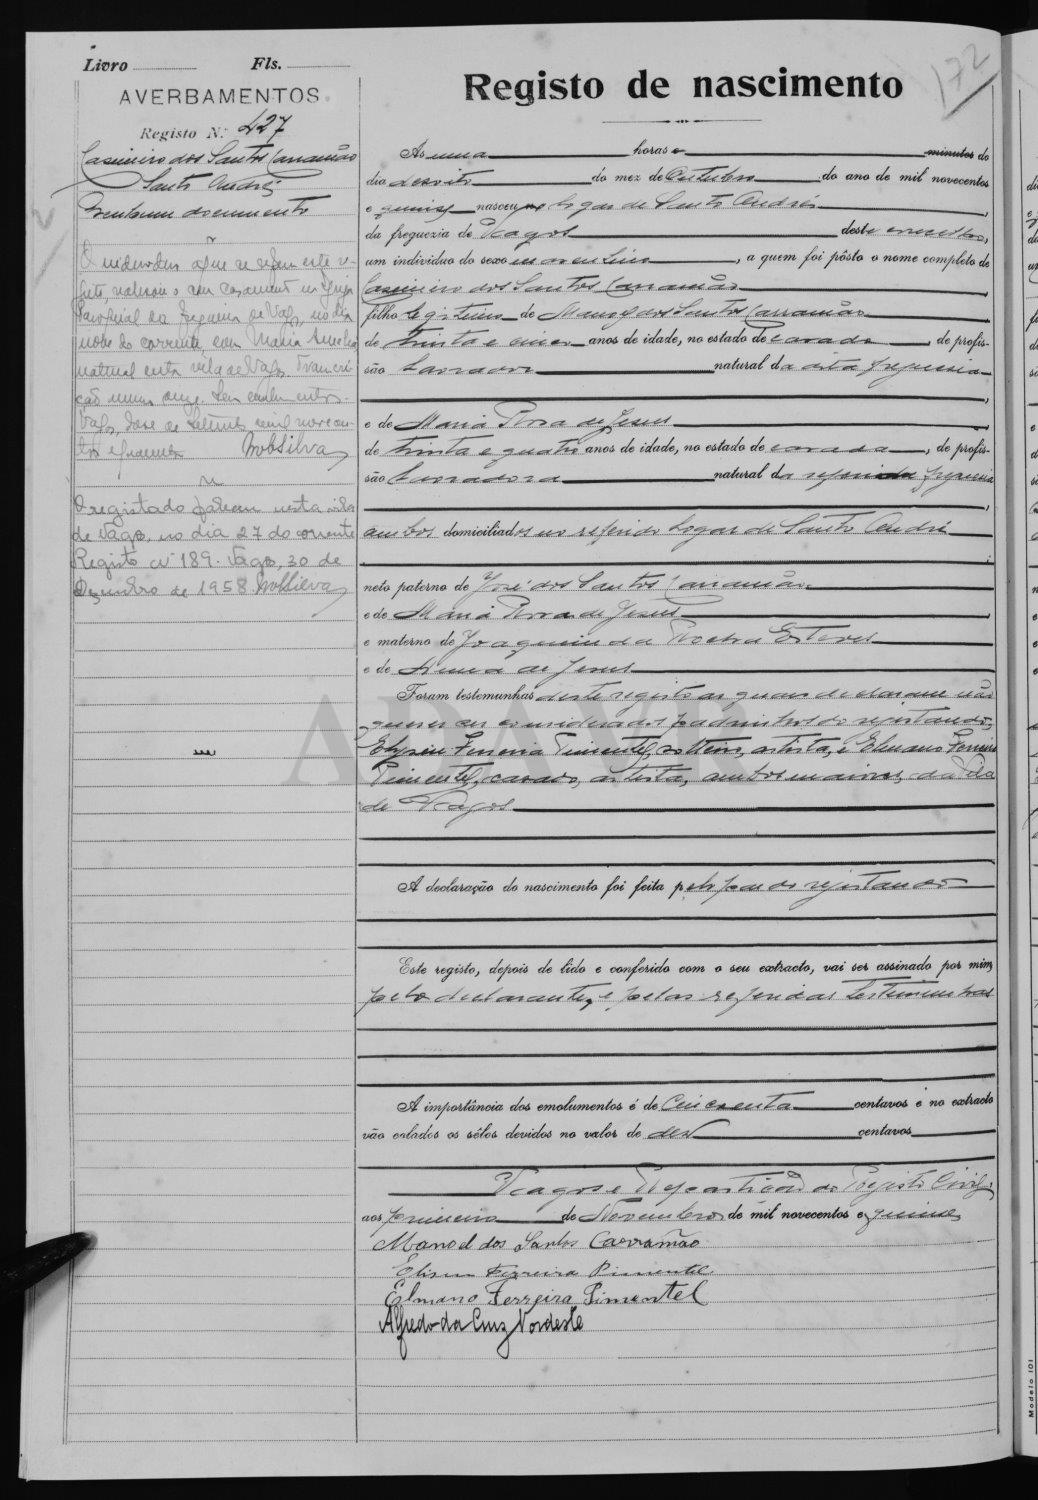 Livro Fls.
AVERBAMENTOS.
Registo N.º 427
Casimiro dos Santos Carramão
Santo André
Nenhum documento
O individuo a que se refere este re-
gisto, realisou o seu casamento na Igreja
Parochial da freguesia de Vagos, no dia
nove do corrente com Maria Amelia
natural desta vila de Vagos. Transcri-
ção numero onze. Sem emolumentos.
Vagos, doze de Setembro de mil novecen-
tos e quarenta
O registado faleceu nesta vila
de Vagos, no dia 27 do corrente
Registo nº 189. Vagos, 30 de
Dezembro de 1958.
172
Registo de nascimento
As uma horas e minutos do
dia dezoito do mez de Outubro do ano de mil novecentos
e quinze nasceu no logar de Santo André
da freguezia de Vagos deste concelho,
um individuo do sexo masculino, a quem foi pôsto o nome completo de
Casimiro dos Santos Carramão
filho legitimo de Manoel dos Santos Carramão
de trinta e cinco anos de idade, no estado de casado, de profis-
são lavrador natural da dita freguesia
e de Maria Rosa de Jesus
de trinta e quatro anos de idade, no estado de casada, de profis-
são lavradora natural da referida freguesia
ambos domiciliados no referido logar de Santo André
neto paterno de José dos Santos Carramão
e de Maria Rosa de Jesus
e materno de Joaquim da Rocha Esteves
e de Anna de Jesus
Foram testemunhas deste registo as quaes declararam não
querer ser considerados padrinhos do registando,
Elyseu Ferreira Pimentel, solteiro, artista, e Elmano Ferreira
Pimentel, casado, artista, ambos maiores, da Vila
de Vagos
A declaração do nascimento foi feita pelo pae do registando
Este registo, depois de lido e conferido com o seu extracto, vai ser assinado por mim,
pelo declarante, e pelas referidas testemunhas
A importância dos emolumentos é de cincoenta centavos e no extracto
vão colados os sêlos devidos no valor de dez centavos
Vagos e Repartição do Registo Civil,
aos primeiro de Novembro de mil novecentos e quinze
Manoel dos Santos Carramão
Eliseu Ferreira Pimentel
Elmano Ferreira Pimentel
Alfredo da Cruz Nordeste
Modelo 101